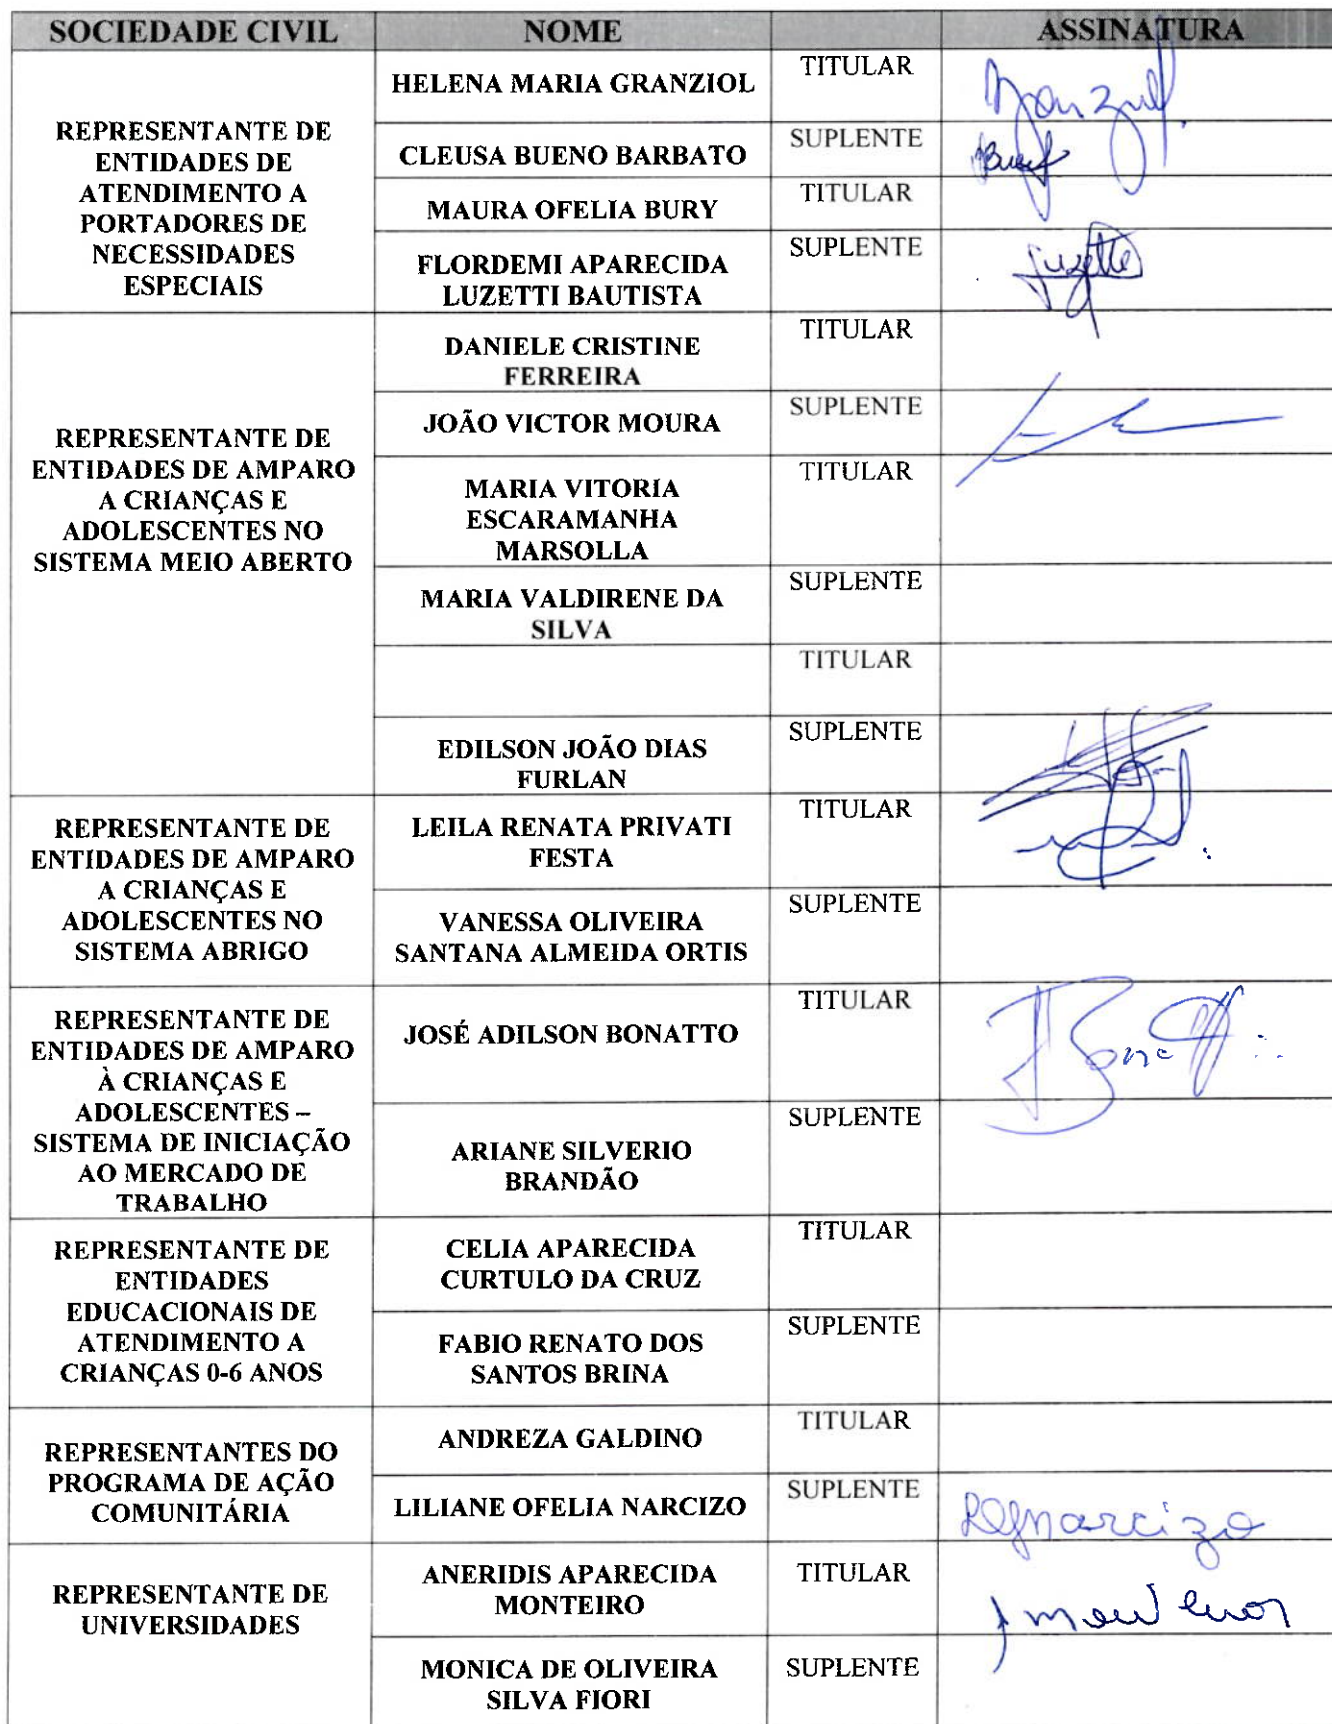 SOCIEDADE CIVIL NOME ASSINATURA
REPRESENTANTE DE
ENTIDADES DE
ATENDIMENTO A
PORTADORES DE
NECESSIDADES
ESPECIAIS
HELENA MARIA GRANZIOL TITULAR
CLEUSA BUENO BARBATO SUPLENTE
MAURA OFELIA BURY TITULAR
FLORDEMI APARECIDA SUPLENTE
LUZETTI BAUTISTA
REPRESENTANTE DE
ENTIDADES DE AMPARO
A CRIANÇAS E
ADOLESCENTES NO
SISTEMA MEIO ABERTO
DANIELE CRISTINE TITULAR
FERREIRA
JOÃO VICTOR MOURA SUPLENTE
MARIA VITORIA TITULAR
ESCARAMANHA
MARSOLLA
MARIA VALDIRENE DA SUPLENTE
SILVA
TITULAR
EDILSON JOÃO DIAS SUPLENTE
FURLAN
REPRESENTANTE DE
ENTIDADES DE AMPARO
A CRIANÇAS E
ADOLESCENTES NO
SISTEMA ABRIGO
LEILA RENATA PRIVATI TITULAR
FESTA
VANESSA OLIVEIRA SUPLENTE
SANTANA ALMEIDA ORTIS
REPRESENTANTE DE
ENTIDADES DE AMPARO
À CRIANÇAS E
ADOLESCENTES –
SISTEMA DE INICIAÇÃO
AO MERCADO DE
TRABALHO
JOSÉ ADILSON BONATTO TITULAR
ARIANE SILVERIO SUPLENTE
BRANDÃO
REPRESENTANTE DE
ENTIDADES
EDUCACIONAIS DE
ATENDIMENTO A
CRIANÇAS 0-6 ANOS
CELIA APARECIDA TITULAR
CURTULO DA CRUZ
FABIO RENATO DOS SUPLENTE
SANTOS BRINA
REPRESENTANTES DO
PROGRAMA DE AÇÃO
COMUNITÁRIA
ANDREZA GALDINO TITULAR
LILIANE OFELIA NARCIZO SUPLENTE
REPRESENTANTE DE
UNIVERSIDADES
ANERIDIS APARECIDA TITULAR
MONTEIRO
MONICA DE OLIVEIRA SUPLENTE
SILVA FIORI